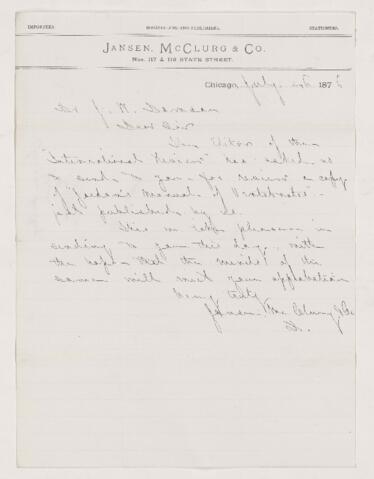 IMPORTERS BOOKSELLERS AND PUBLISHERS. STATIONERS.
JANSEN, McCLURG & CO.
Nos. 117 & 119 STATE STREET.
Chicago, July 187
Dr J. W. Dawson
Dear Sir
The Editor of the
"International Review" has asked us
to send to you - for review a copy
of "Jordan's Manual of Vertebrates"
just published by us.
This we take pleasure in
sending to you this day, with
the hope that the merits of the
same will meet your approbation
Very truly
Jansen, McClurg & Co